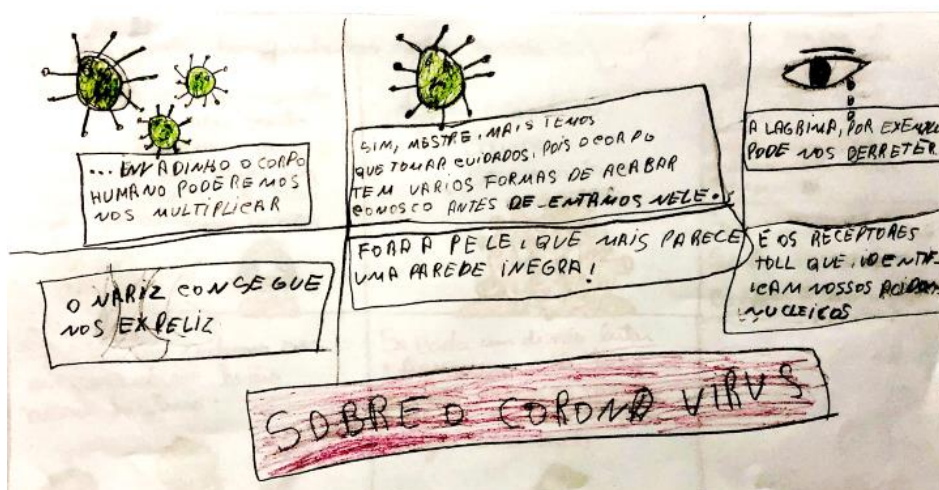 ... ENVADINHO O CORPO
HUMANO PODEREMOS
NOS MULTIPLICAR
SIM, MESTRE, MAIS TEMOS
QUE TOMAR CUIDADOS, POIS O CORPO
TEM VARIOS FORMAS DE ACABAR
CONOSCO ANTES DE ENTAMOS NELE.
A LAGRIMA, POR EXEMPLO
PODE NOS DERRETER
O NARIZ CONSEGUE
NOS EXPELIZ
FORA A PELE, QUE MAIS PARECE
UMA PAREDE INEGRA!
E OS RECEPTORES
TOLL QUE, IDENTIF
ICAM NOSSOS ACIDOS
NUCLEICOS
SOBRE O CORONA VIRUS